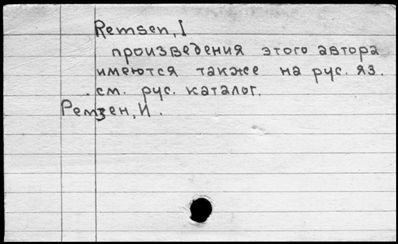 Remsen, I
произведения этого автора
имеются также на рус. яз.
см. рус. каталог.
Ремзен, И.